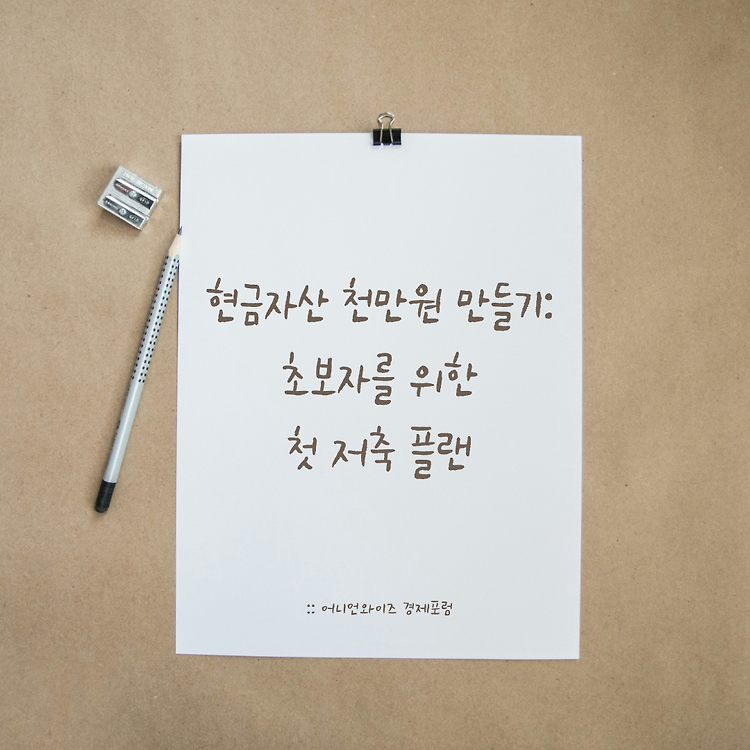 현금자산 천만원 만들기:
초보자를 위한
첫 저축 플랜
:: 어니언와이즈 경제포럼